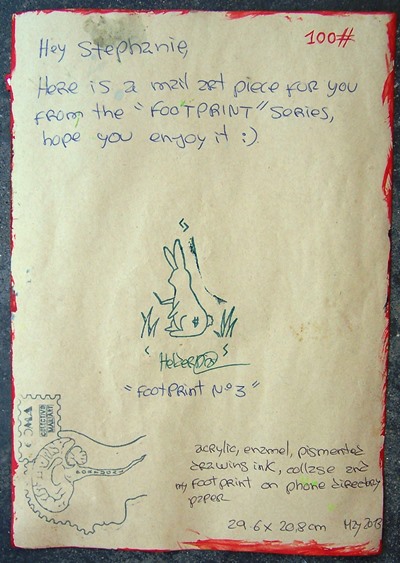 100#
Hey Stephanie,
Here is a mail art piece for you
from the "FOOTPRINT" series,
hope you enjoy it :)
"Footprint Nº3"
acrylic, enamel, pigmented
drawing ink, collage and
my footprint on phone directory
paper
29.6 x 20,8cm May 2013